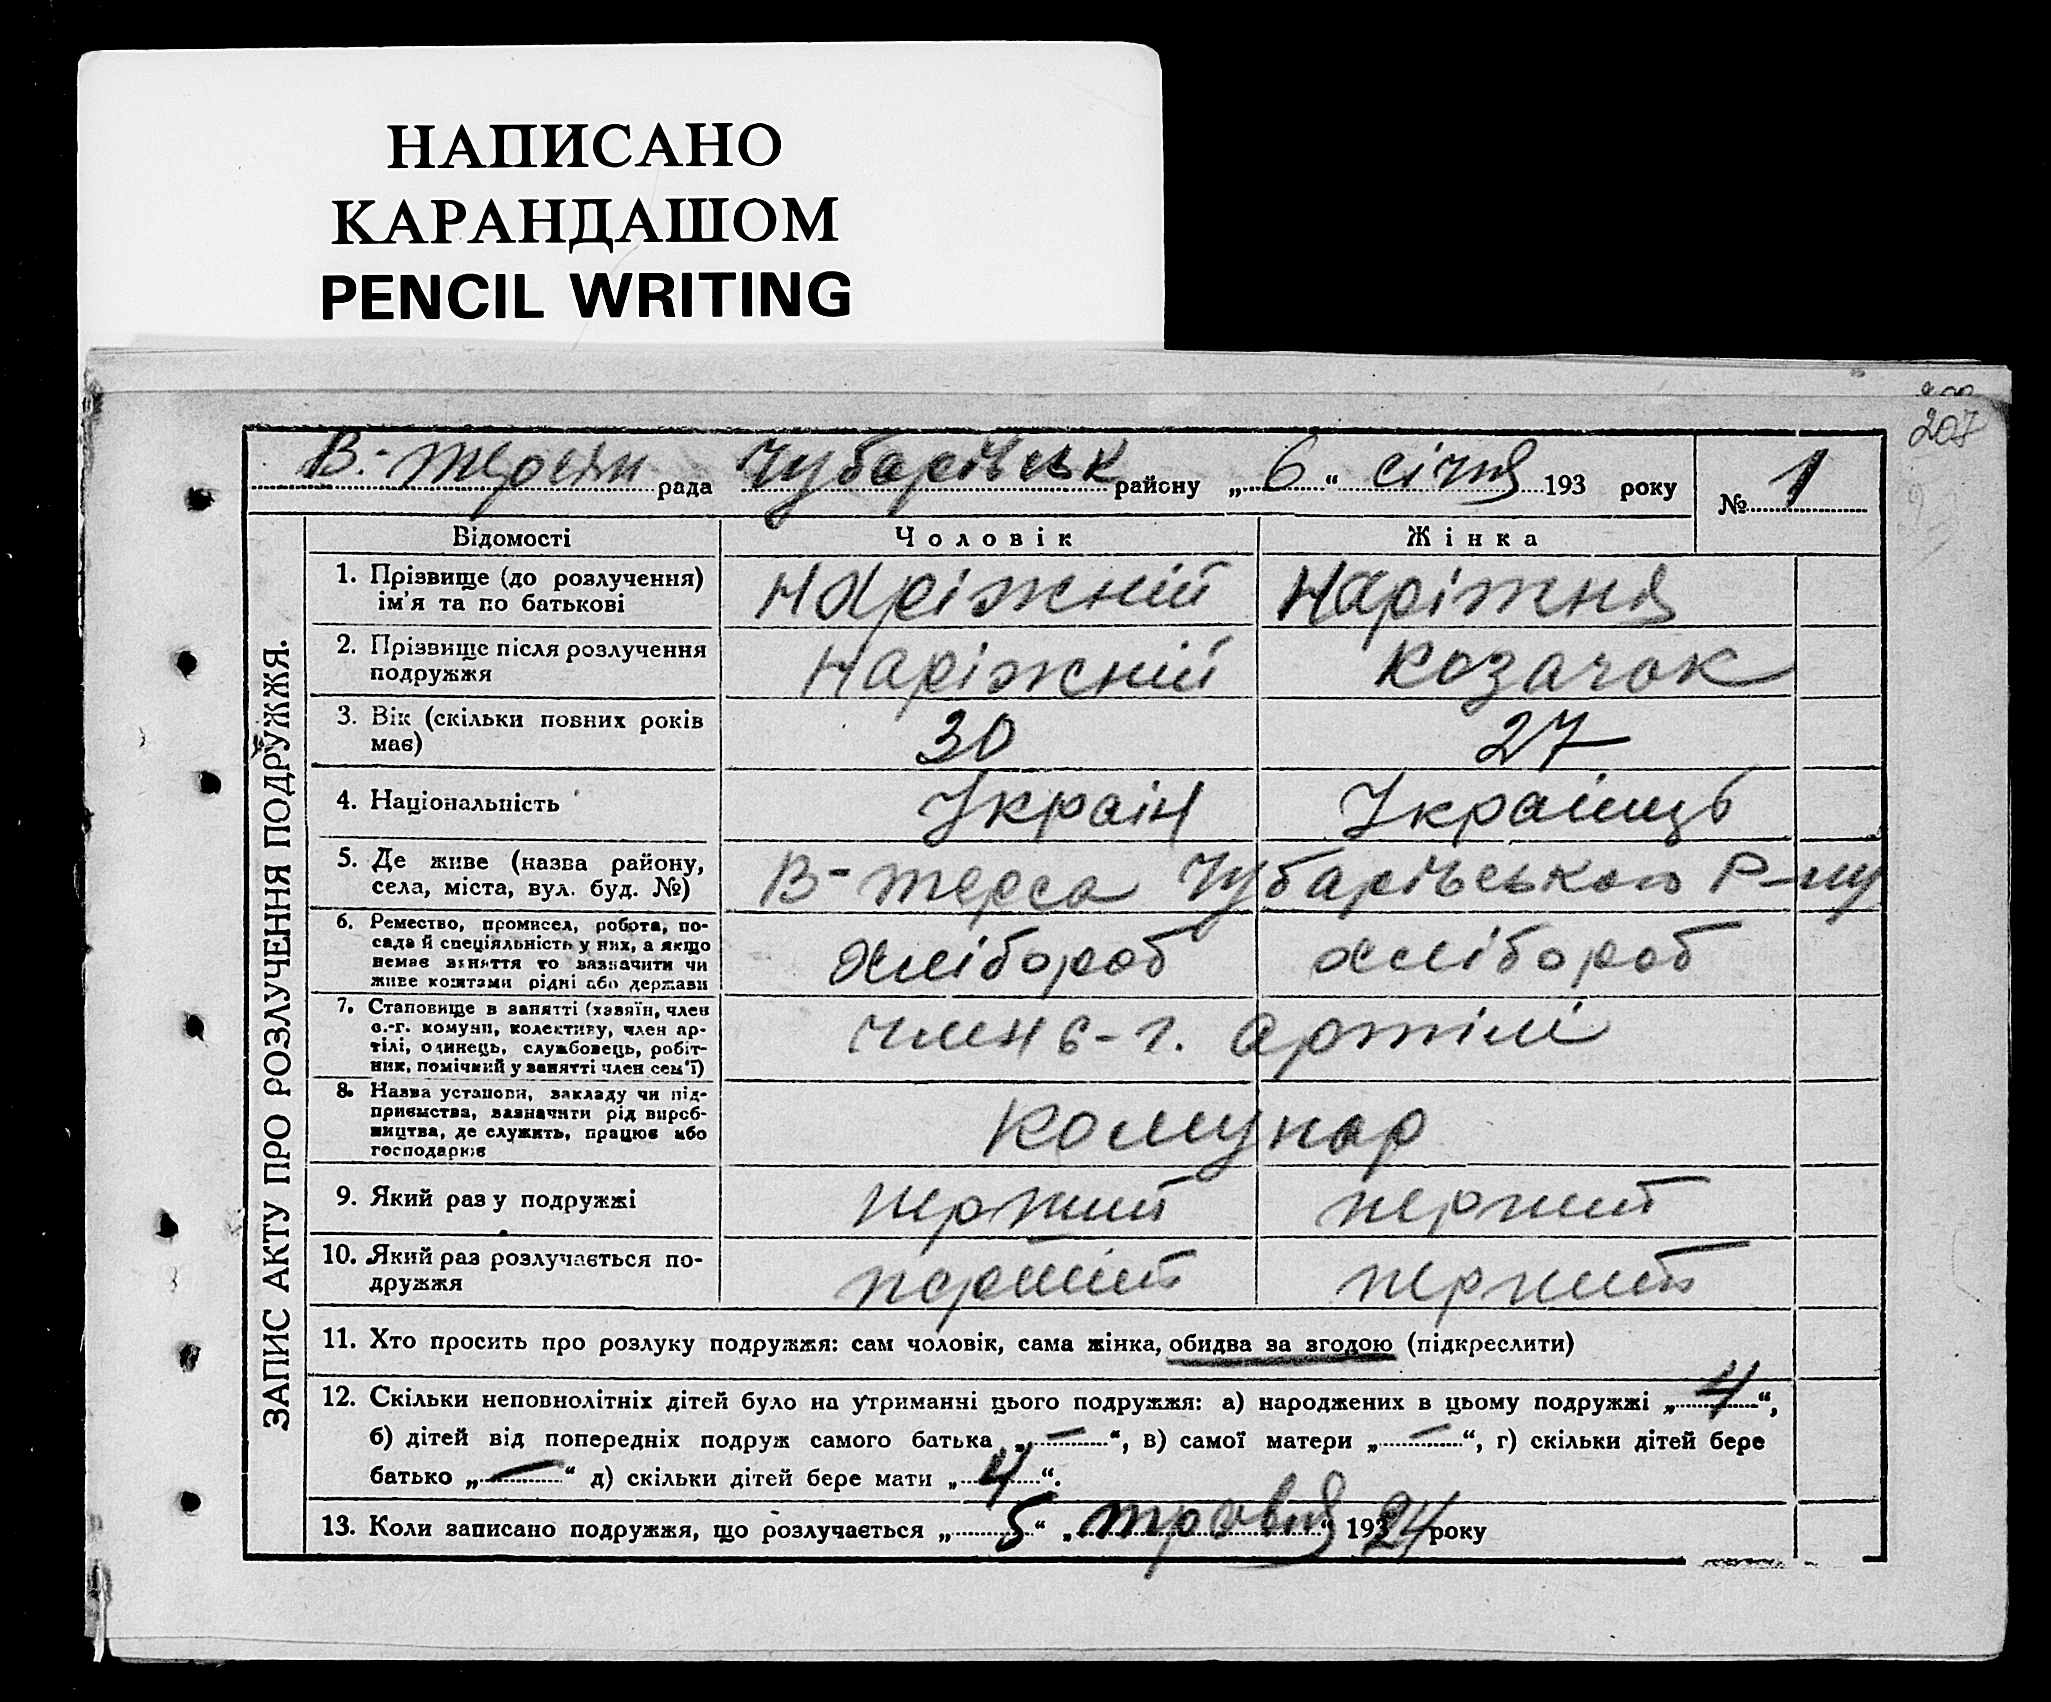 НАПИСАНО
КАРАНДАШОМ
PENCIL WRITING
207
В.-Терсян рада Чубарівськ району „6“ січня 193 року № 1
ЗАПИС АКТУ ПРО РОЗЛУЧЕННЯ ПОДРУЖЖЯ.
Відомості Чоловік Жінка
1. Прізвище (до розлучення) ім'я та по батькові Наріжній Наріжня
2. Прізвище після розлучення подружжя Наріжній Козачок
3. Вік (скільки повних років має) 30 27
4. Національність Украін Украінць
5. Де живе (назва району, села, міста, вул. буд. №) В-терса Чубарівського Р-ну
6. Ремество, промисел, робота, посада й спеціяльність у них, а якщо немає заняття то зазначити чи живе коштами рідні або держави хлібороб хлібороб
7. Становище в занятті (хазяїн, член с.-г. комуни, колективу, член артілі, одинець, службовець, робітник, помічний у занятті член сем'ї) член с-г. артілі
8. Назва установи, закладу чи підприємства, зазначити рід виробництва, де служить, працює або господарює Комунар
9. Який раз у подружжі перший перший
10. Який раз розлучається подружжя перший перший
11. Хто просить про розлуку подружжя: сам чоловік, сама жінка, обидва за згодою (підкреслити)
12. Скільки неповнолітніх дітей було на утриманні цього подружжя: а) народжених в цьому подружжі „4“,
б) дітей від попередніх подруж самого батька „—“, в) самої матери „—“, г) скільки дітей бере
батько „—“ д) скільки дітей бере мати „4“.
13. Коли записано подружжя, що розлучається „5“ „травня“ 1924 року